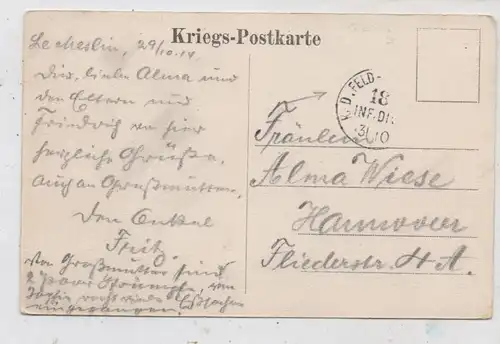 Kriegs-Postkarte
Le Mesnil, 29/10.14.
Dir, liebe Alma und
den Eltern und
Friedrich von hier
herzliche Grüße,
auch an Großmutter.
Dein Onkel
Fritz.
Von Großmutter sind
2 Paar Strümpfe, von
viele Eßsachen
eingegangen.
K.D. FELD-
18
INF. DIV.
31.10
Fräulein
Alma Wiese
Hannover
Fliederstr. 4 A.